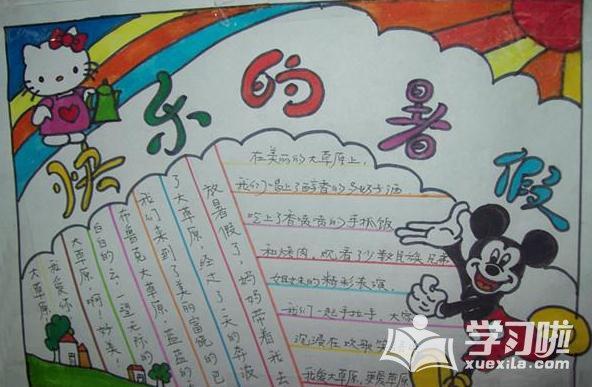 快乐的暑假
放暑假了，妈妈带着我去
了大草原，经过了一天的奔波
我们来到了美丽富饶的巴
布鲁克大草原，蓝蓝的
白白的云，一望无际的
大草原，啊！好美！
我爱你
大草原
在美丽的大草原上，
我们喝上了醇香的马奶子酒
吃上了香喷喷的手抓饭
和烤肉，欣看了少数民族兄弟
姐妹的精彩表演，
我们一起手拉手，大家
沉浸在欢歌笑
我爱大草原，更爱草原
学习啦
xuexila.com